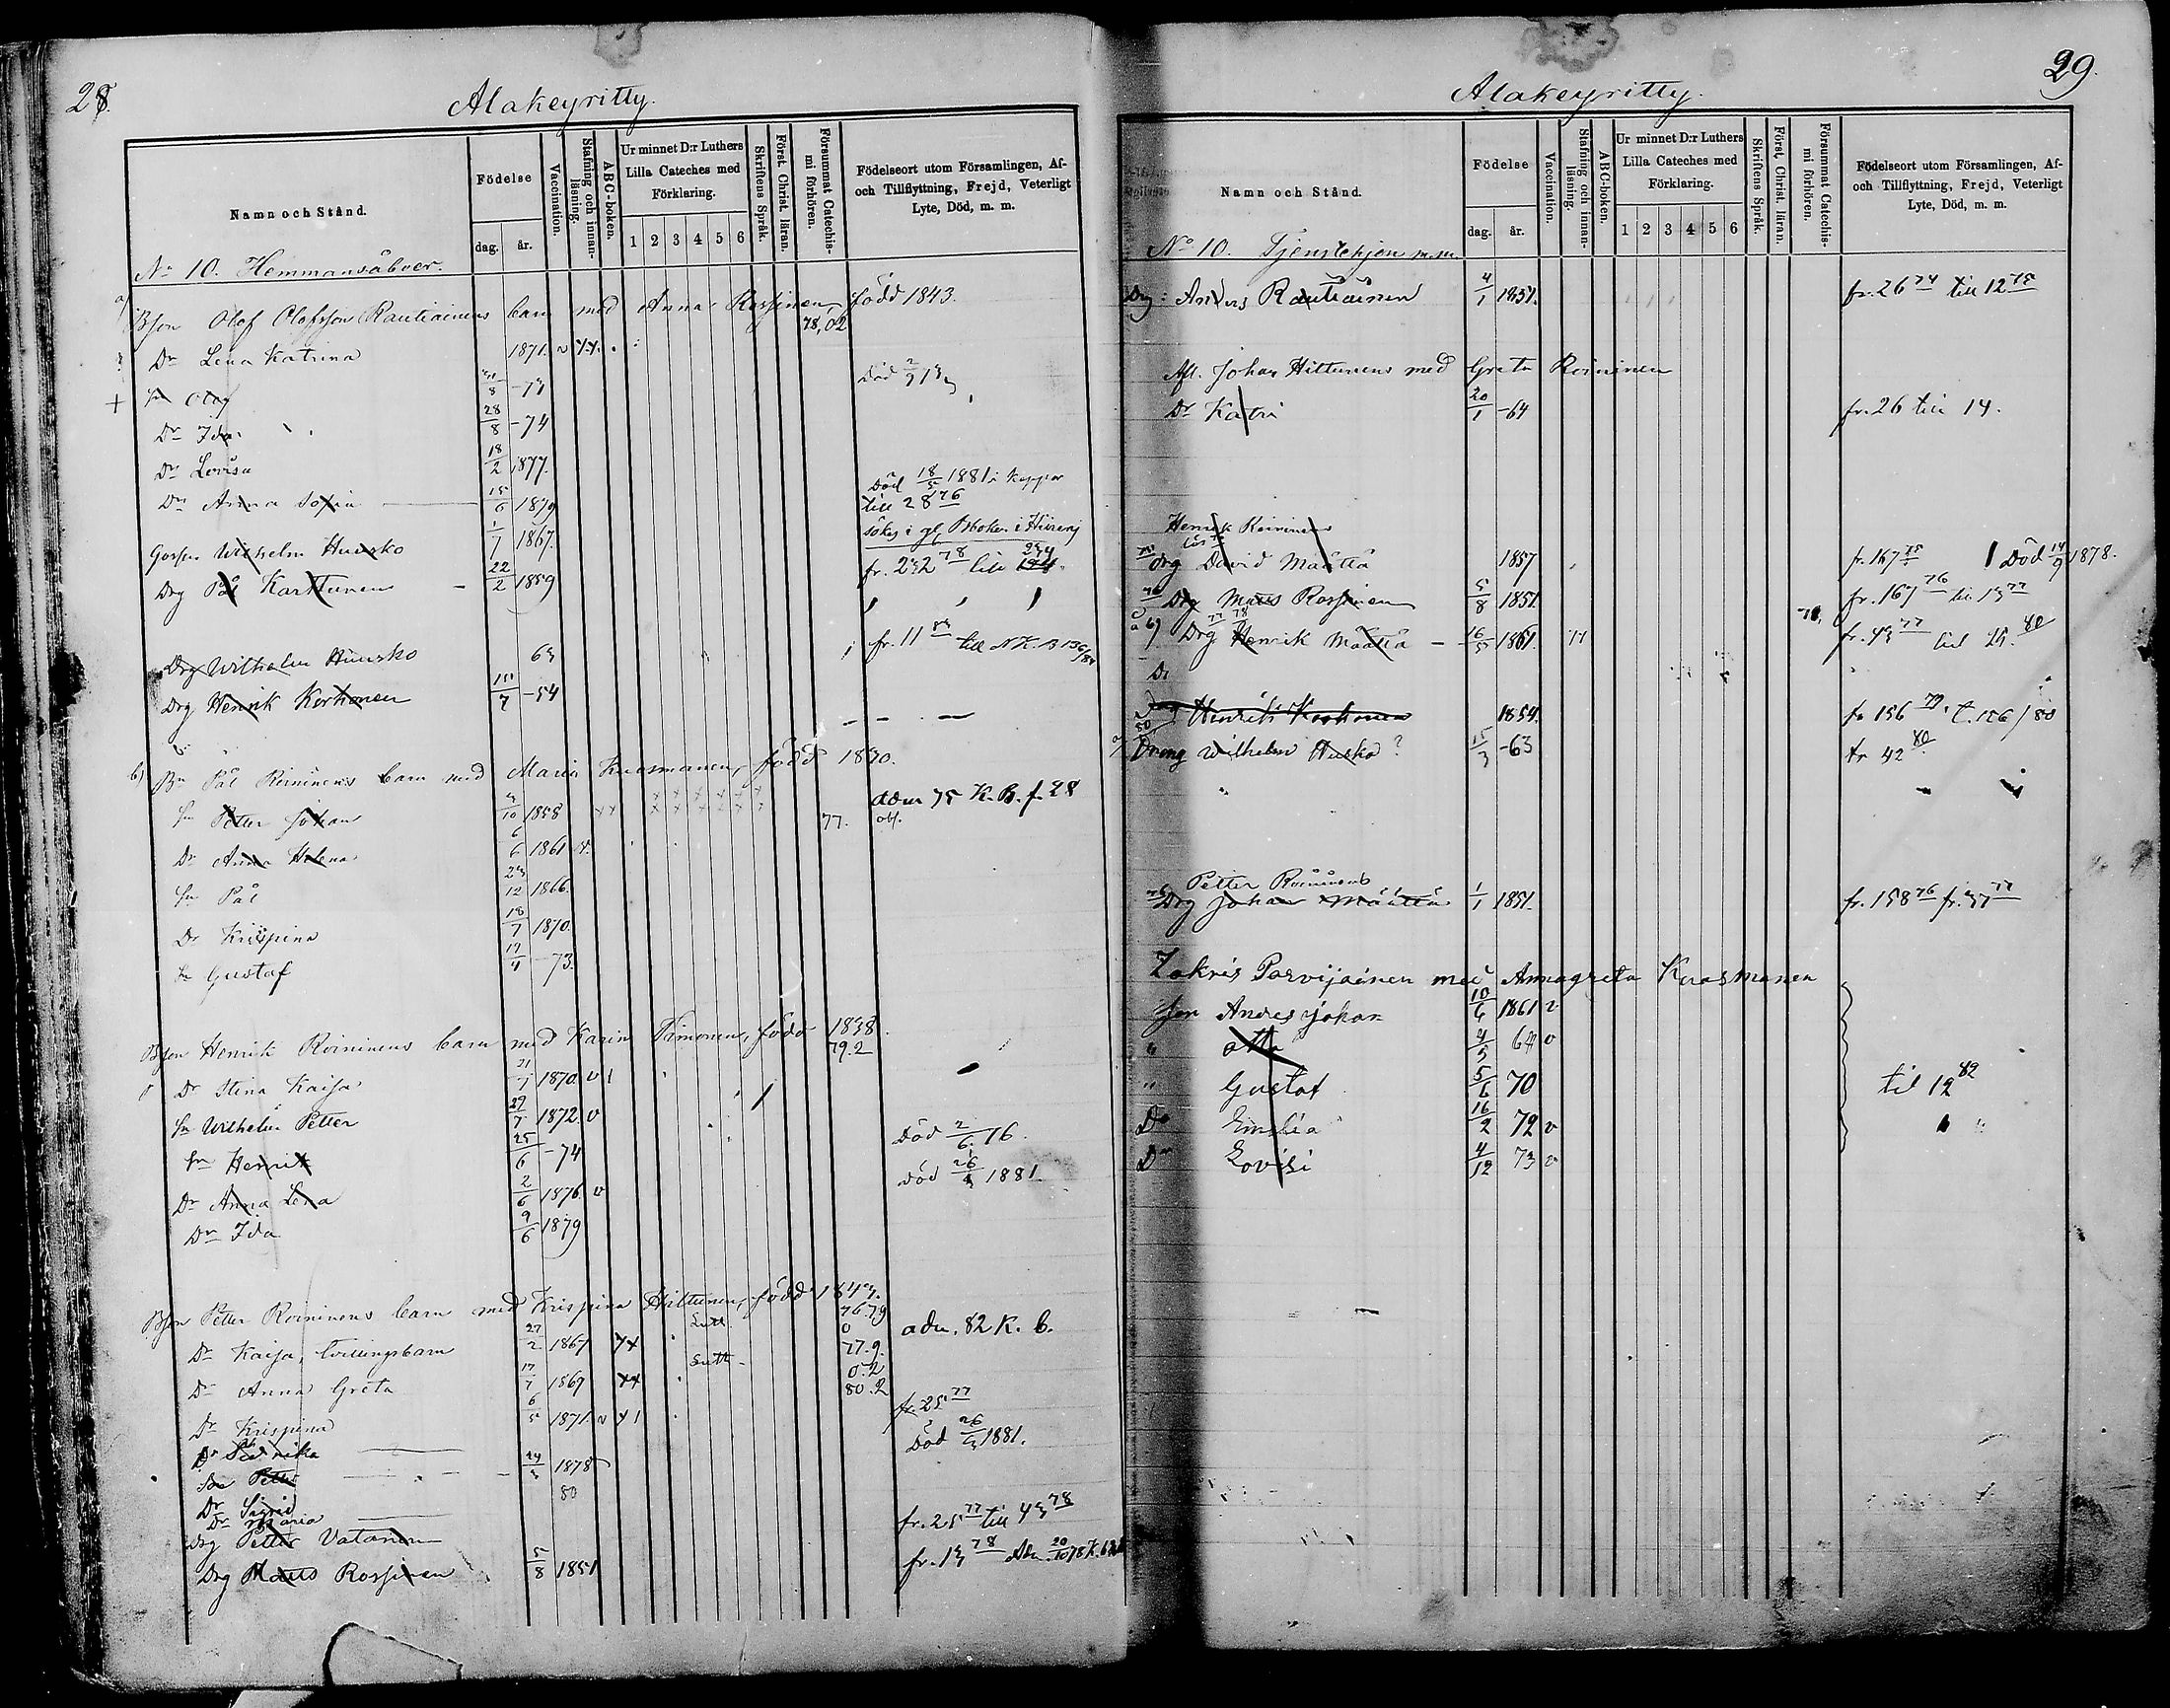 28.
Alakeyritty.
Namn och Stånd.
Födelse
dag. år.
Vaccination.
Stafning och innan-läsning.
ABC-boken.
Ur minnet D:r Luthers Lilla Cateches med Förklaring.
1 2 3 4 5 6
Skriftens Språk.
Först. Christ. läran.
Försummat Catechis-mi förhören.
Födelseort utom Församlingen, Af- och Tillflyttning, Frejd, Veterligt Lyte, Död, m. m.
No 10. Hemmansåboer.
a) Bson Olof Olofsson Rautiainens barn med Anna Rossinen född 1843.
78,02
Dr Lena Katrina 1871. v
Sn Olof 8 -73 Död 2/9 73
Dr Ida 28/8 -74
Dr Lovisa 18/2 1877.
Dr Anna Sofia 15/6 1879 Död 18/5 1881 i koppor
till 28 76
Gossen Wilhelm Huusko 1/1 1867. sökes i gl. Bboken i
Drg Pål Karttunen 22/2 1859 fr. 232 78 till
Drg Wilhelm Huusko 63 fr. 11 till N.K.B 136/84
Drg Henrik Korhonen 7 -54
b) Bn Pål Roininens barn med Maria Kuosmanen, född 1830.
Sn Petter Johan 10 1858 adm 75 K.B. f. 28
Dr Anna Helena 6/6 1861 v. 77. obs.
Sn Pål 23/12 1866.
Dr Krispina 18/7 1870.
Sn Gustaf 17/4 -73.
Bson Henrik Roininens barn med Karin Timonen, född 1838.
79.2
Dr Stina Kaisa 21/1 1870 v
Sn Wilhelm Petter 29/7 1872. v
Sn Henrik 25/6 -74 Död 2/6 76.
Dr Anna Lena 2/6 1876. v Död 26/3 1881.
Dr Ida 9/6 1879
Bson Petter Roininens barn med Krispina Hiltunen, född 1843.
76.79
Dr Kaisa, tvillingsbarn 27/2 1867 0 adm. 82 K. b.
77.9.
Dr Anna Greta 17/7 1869 0.2
80.2
Dr Krispina 6/5 1871. v fr. 25 77
Död 26/3 1881.
Son Petter 24/3 1878
80
Dr Sigrid
Dr Maria
Drg Petter Vatanen fr. 25 77 till 43 78
Drg Mats Rossinen 5/8 1851 fr. 13 78
29.
Alakeyritty.
Namn och Stånd.
Födelse
dag. år.
Vaccination.
Stafning och innan-läsning.
ABC-boken.
Ur minnet D:r Luthers Lilla Cateches med Förklaring.
1 2 3 4 5 6
Skriftens Språk.
Först. Christ. läran.
Försummat Catechis-mi förhören.
Födelseort utom Församlingen, Af- och Tillflyttning, Frejd, Veterligt Lyte, Död, m. m.
No 10. Tjenstehjon m.m.
Drg: Anders Rautiainen 4/1 1851. fr. 26 74 till 12 75
Afl. Johan Hiltunens med Greta Roininen
Dr Katri 20/1 -64 fr. 26 till 14.
Henrik Roininens
Drg David Määttä 1857 fr. 167 75 Död 14/9 1878.
76 Drg Mats Rossinen 5/8 1851. fr. 167 76 till 13 77
b) Drg Henrik Määttä 16/5 1861. fr. 43 77 till 80
Drg Henrik Korhonen 1854. fr 156 79. t. 156/80
Dräng Wilhelm Husko? 15/3 -63 fr 42 80
Petter Roininens
Drg Johan Määttä 1/1 1851. fr. 158 76 fr. 37 77
Zakris Parvijainen med Annagreta Kuosmanen
Son Anders Johan 10/6 1861 v
" Otto 4/5 64 v
" Gustaf 5/6 70 til 12 82
Dr Emelia 16/2 72 v
Dr Lovisi 4/12 73 v